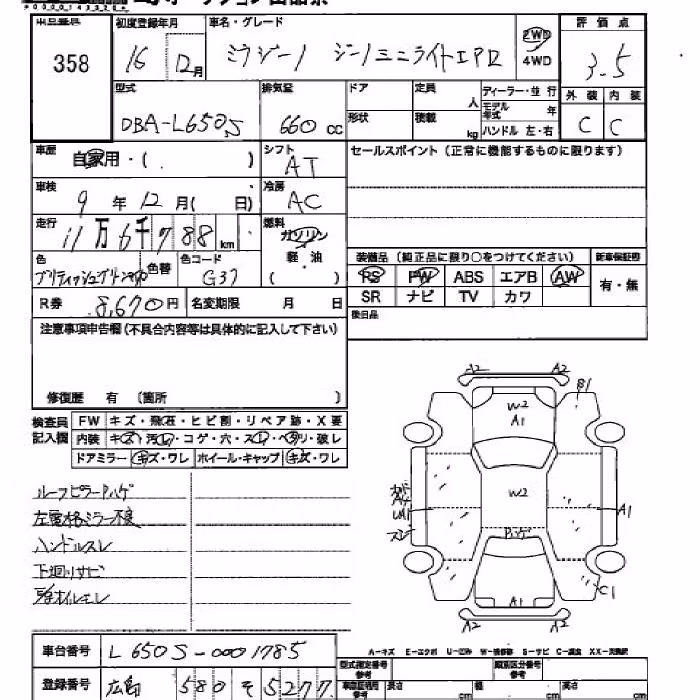 車名・グレード
初度登録年月
評価点
358
16 12月
ミラジーノ ジーノミニライトエアロ
2WD
4WD
3.5
型式
排気量
ドア
定員 人
ディーラー・並行
モデル年式 年
外装 内装
DBA-L650S
660 cc
形状
積載 kg
ハンドル 左・右
C C
車歴
自家用・( )
シフト
AT
セールスポイント(正常に機能するものに限ります)
車検
9年12月( 日)
冷房
AC
走行
11万6千788km
燃料
ガソリン
軽・油
( )
色
色替
色コード
G37
装備品(純正品に限り○をつけてください)
新車保証書
PS PW ABS エアB AW
有・無
R券 8,670円
名変期限 月 日
SR ナビ TV カワ
後日品
注意事項申告欄(不具合内容等は具体的に記入して下さい)
修復歴 有 〔箇所 〕
検査員記入欄
FW キズ・飛石・ヒビ割・リペア跡・X要
内装 キズ・汚レ・コゲ・穴・スレ・ヘタリ・破レ
ドアミラー キズ・ワレ ホイール・キャップ キズ・ワレ
ルーフピラーPハゲ
左電格ミラー不良
ハンドルスレ
下廻りサビ
A2 A2
B1
W2
A1
W2
A1
Pハゲ
C1
A1
A2 A2
車台番号 L650S-0001785
A-キズ E-エクボ U-凹み W-補修跡 S-サビ C-腐食 XX-交換済
型式指定番号
類別区分番号
登録番号 広島 580 そ 5277
長さ cm 幅 cm 高さ cm